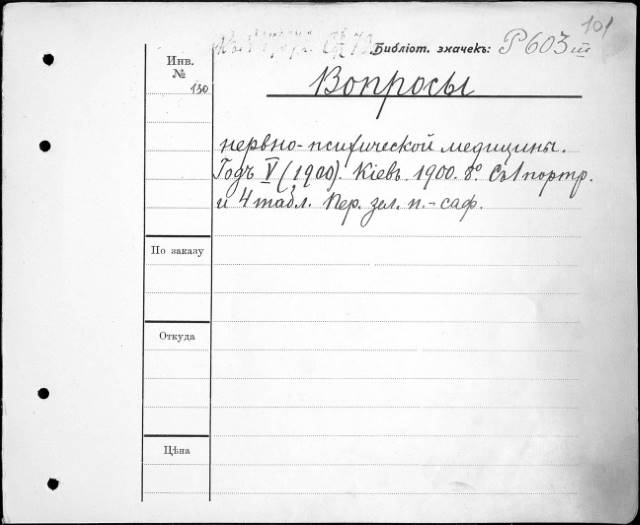 101
Библіот. значекъ: P 603 III
Инв.
№
130
Вопросы
нервно-психической медицины.
Годъ V (1900). Кіевъ. 1900. 8°. Съ 1 портр.
и 4 табл. Пер. зел. п.-саф.
По заказу
Откуда
Цѣна